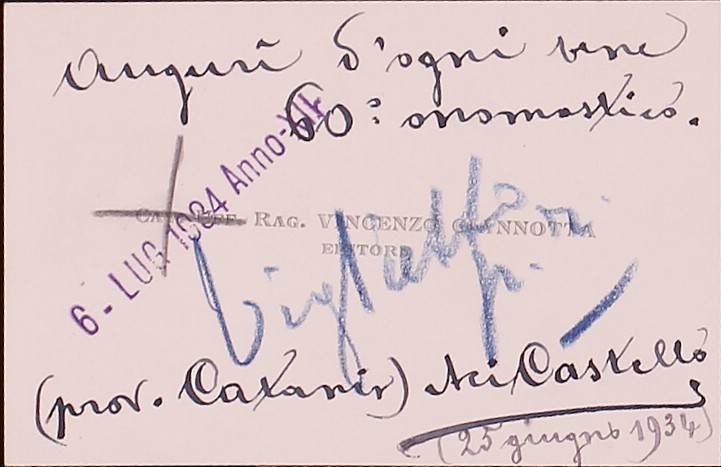 Auguri d'ogni bene
60º onomastico.
6 - LUG 1934 Anno-XII
CAV. UFF. RAG. VINCENZO GIANNOTTA
EDITORE
(prov. Catania) Aci Castello
(25 giugno 1934)